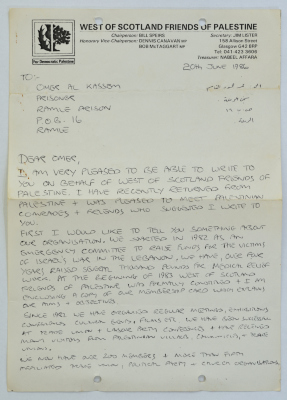 WEST OF SCOTLAND FRIENDS OF PALESTINE
Chairperson: BILL SPEIRS
Honorary Vice-Chairperson: DENNIS CANAVAN MP
BOB McTAGGART MP
Secretary: JIM LISTER
Glasgow G42
Tel: 041 423 3606
Treasurer: NABEEL AFFARA
20th JUNE 1986
TO:-
OMAR AL KASSEM
PRISONER
RAMLE PRISON
P.O.B. 16
RAMLE
DEAR OMAR,
I AM VERY PLEASED TO BE ABLE TO WRITE TO
YOU ON BEHALF OF WEST OF SCOTLAND FRIENDS OF
PALESTINE. I HAVE RECENTLY RETURNED FROM
PALESTINE + WAS PLEASED TO MEET PALESTINIAN
COMRADES + FRIENDS WHO SUGGESTED I WRITE TO
YOU.
FIRST I WOULD LIKE TO TELL YOU SOMETHING ABOUT
OUR ORGANISATION. WE STARTED IN 1982 AS AN
EMERGENCY COMMITTEE TO RAISE FUNDS FOR THE VICTIMS
OF ISRAEL'S WAR IN THE LEBANON. WE HAVE, OVER FOUR
YEARS, RAISED SEVERAL THOUSAND POUNDS FOR RELIEF
WORK. AT THE BEGINNING OF 1983 WEST OF SCOTLAND
FRIENDS OF PALESTINE WAS FORMALLY CONSTITUTED + I AM
ENCLOSING A COPY OF OUR MEMBERSHIP CARD WHICH EXPLAINS
OUR AIMS + OBJECTIVES.
SINCE 1982 WE HAVE ORGANISED REGULAR MEETINGS, EXHIBITIONS
CONFERENCES, CULTURAL EVENTS, FILMS ETC. WE HAVE BEEN INVOLVED
AT TRADE UNION + LABOUR PARTY CONFERENCES + HAVE RECEIVED
MANY VISITORS FROM PALESTINIAN
WE NOW HAVE OVER 200 MEMBERS + MORE THAN FIFTY
AFFILIATED TRADE UNION, POLITICAL PARTY + CHURCH ORGANISATIONS